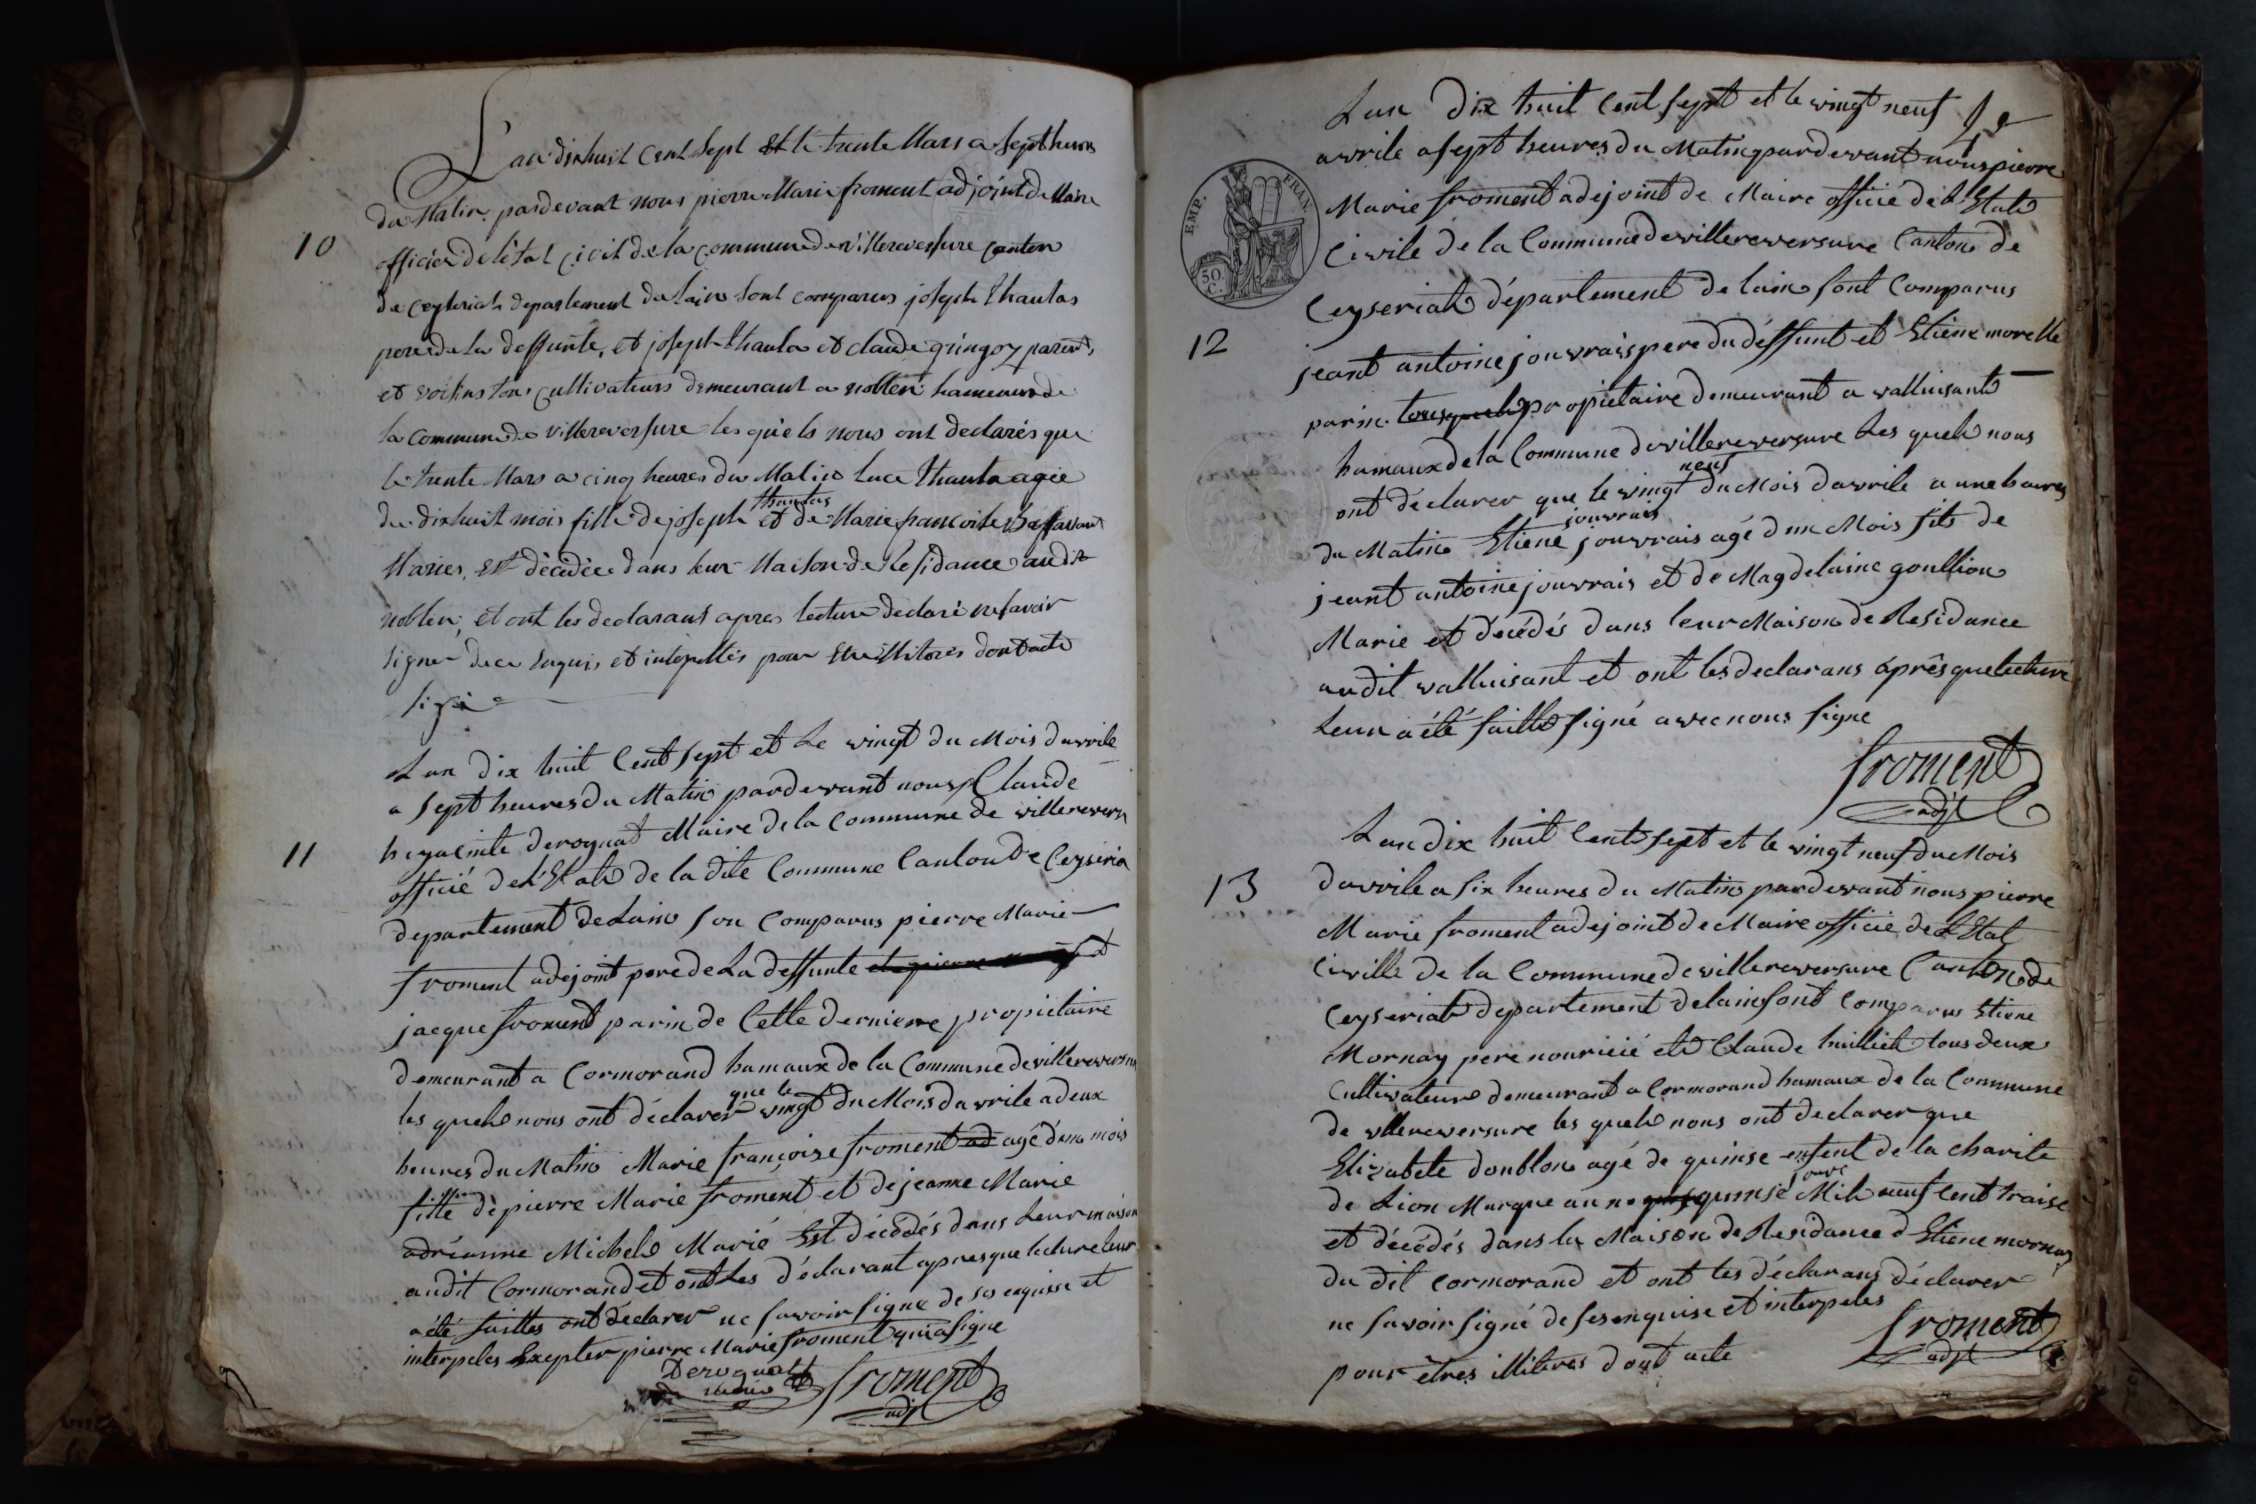 L'an dixhuit Cent Sept et le trente Mars a Sept heures
du Matin pardevant nous pierre Marie froment adjoint de Maire
10
officier de l'état Civil de la Commune de Villereversure Canton
de Ceyseriat departement de l'ain sont comparus joseph thaulas
pere de la deffunte, et joseph thaula et claude guingoy parents
et voisins tous Cultivateurs demeurant a noblen hameaux de
la commune de Villereversure les quels nous ont declarés que
le trente Mars a cinq heures du Matin Luce thaula agée
de dixhuit mois fille de joseph thaulas et de Marie francoise
Mariés, Est décédée dans leur Maison de Residance audit
noblen, et ont les declarants apres lecture declaré ne savoir
signer de ce enquis et interpellés pour etre illitores dont acte
signé
L an dix huit Cent sept et Le vingt du Mois davrile
a sept heures du Matin pardevant nous Claude
11
hyacinte derognat Maire de la Commune de villerevers
officié de l'Etate de la dite Commune Canton de Ceyseria
departement de Lain son Comparus pierre Marie
froment adejoint pere de La deffunte
jacque froment parin de Cette derniere propietaire
demeurant a Cormorand hamaux de la Commune de villereversur
les quels nous ont déclarer que le vingt du Mois davrile a deux
heures du Matin Marie françoise froment ad agé d'un mois
fille de pierre Marie froment et de jeanne Marie
adréanne Michele Marié Est décédés dans Leur maison
audit Cormorand et ont Les déclarant apres que lecture leur
a été faittes ont déclarer ne savoir signe de ses enquise et
interpeles Exepter pierre Marie froment qui a signe
Derognat
maire
froment
adjt
L an Dix huit Cent sept et le vingt neuf
avrile a sept heures du Matin pardevant nous pierre
EMP. FRAN.
50 C.
Marie froment adejoint de Maire officié de l Etate
Civile de la Commune de villereversure Canton de
Ceyseriat département de lain sont Comparus
12
jeant antoine jouvrais pere du déffunt et Etiene morelle
parin propietaire demeurant a valluisant
hamaux de la Commune de villereversure Les quels nous
ont déclarer que le vingt neuf du Mois davrile a une heures
du Matin Etiene jouvrais jouvrais agé dun Mois fils de
jeant antoine jouvrais et de Magdelaine goullion
Marie et décédés dans leur Maison de Residance
audit valluisant et ont les declarans aprês que lecture
Leur a été faitte signé avec nous signe
froment
adjt
L an dix huit Cent sept et le vingt neuf du Mois
13
davrile a six heures du Matin pardevant nous pierre
Marie froment adejoint de Maire officié de L Etat
Civille de la Commune de villereversure Canton de
Ceyseriat departement de lain sont Comparus Etiene
Mornay pere nouricié ete Claude huilliet tous deux
Cultivateurs demeurant a Cormorand hamaux de la Commune
de vllereversure les quels nous ont declarer que
Elizabete doublon agé de quinse enfent de la charite
de Lion Marque au no quinse Mil neuf cent traise
et décédés dans la Maison de Residance d Etiene mornay
du dit Cormorand et ont les déclarans déclarer
ne savoir signé de ses enquise et interpeles
pour êtres illiteres dont acte
froment
adjt